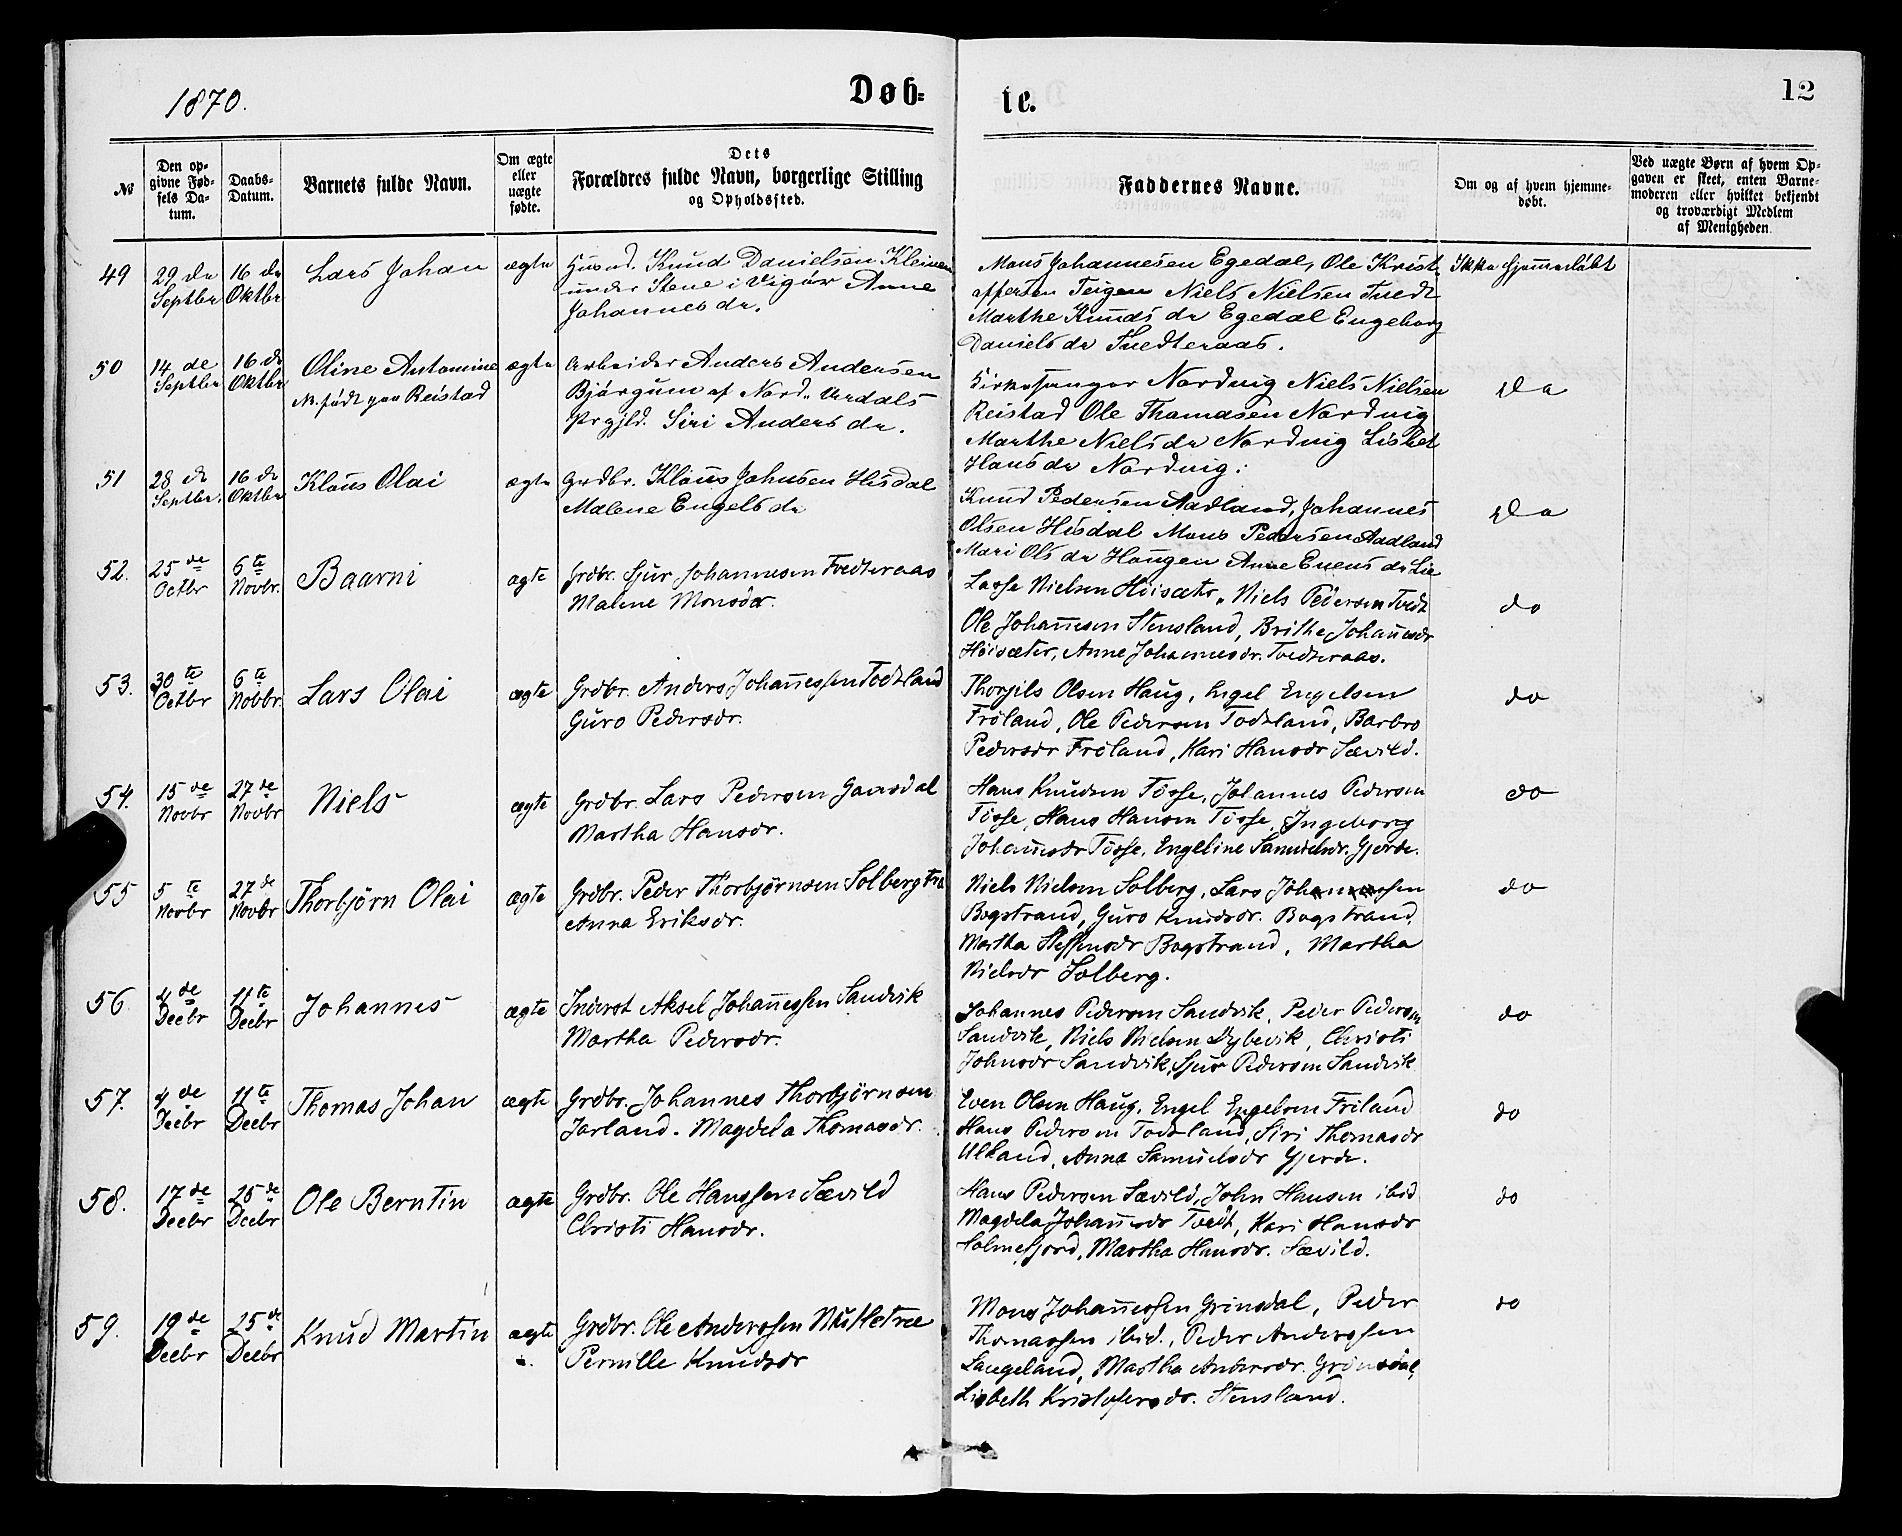 1870.
Døb=
te.
12
№
Den op-
givne Fød-
sels Da-
tum.
Daabs-
Datum.
Barnets fulde Navn.
Om ægte
eller
uægte
fødte.
Dets
Forældres fulde Navn, borgerlige Stilling
og Opholdssted.
Faddernes Navne.
Om og af hvem hjemme-
døbt.
Ved uægte Børn af hvem Op-
gaven er skeet, enten Barne-
moderen eller hvilket bekjendt
og troværdigt Medlem
af Menigheden.
49
29 de
Septbr
16 de
Oktbr
Lars Johan
ægte
Huusmd. Knud Danielsen Kleiven
under Stene i Vigør Anne
Johannes dr.
Mons Johannesen Egedal, Ole Krist
offersen Teigen Niels Nielsen Tvedt
Marthe Knuds dr Egedal Engeborg
Daniels dr Tvedteraas.
Ikke hjemmedøbt
50
14 de
Septbr
16 de
Oktbr
Oline Antomine
N. født paa Reistad
ægte
Arbeider Anders Andersen
Bjørgum af Nord. Urdals
Prgjld. Siri Anders dr.
Kirkesanger Nordvig Niels Nielsen
Reistad Ole Thomasen Nordvig
Marthe Niels dr Nordvig Lisbet
Hans dr Nordvig.
Do
51
28 de
Septbr.
16 de
Oktbr
Klaus Olai
ægte
Grdbr. Klaus Johnsen Hisdal
Malene Engels dr
Knud Pedersen Aadland, Johannes
Olsen Hisdal Mons Pedersen Aadland
Mari Ols dr Haugen Anne Evens dr Lie
Do
52.
25 de
Octbr
6te
Novbr.
Baarni
ægte
Grdbr. Sjur Johannesen Tvedteraas
Malene Monsdr.
Lasse Nielsen Höisæter, Niels Pedersen Tvedt
Ole Johannesen Stensland, Brithe Johannesdr
Höisæter, Anne Johannesdr. Tvedteraas.
do
53.
30 te
Octbr
6te
Novbr.
Lars Olai
ægte
Grdbr. Anders Johannessen Todtland
Guro Pedersdr.
Thorgils Olsen Haug, Engel Engelsen
Fröland, Ole Pedersen Todtland, Barbro
Pedersdr Fröland, Kari Hansdr Sævild.
do
54.
15 de
Novbr
27 de
Novbr
Niels
ægte
Grdbr. Lars Pedersen Gamsdal
Martha Hansdr.
Hans Knudsen Tösse, Johannes Pedersen
Tösse, Hans Hansen Tösse, Ingeborg
Johannesdr Tösse, Engeline Samuelsdr. Gjerde.
do
55
5 te
Novbr
27 de
Novbr
Thorbjörn Olai
ægte
Grdbr. Peder Thorbjørnsen Solbergtræ
Anna Eriksdr.
Niels Nielsen Solberg, Lars Johannessen
Bogstrand, Guro Knudsdr. Bogstrand,
Martha Steffensdr Bogstrand, Martha
Nielsdr Solberg.
do
56
4 de
Decbr
11te
Decbr
Johannes
ægte
Inderst Aksel Johannessen Sandvik
Martha Pedersdr.
Johannes Pedersen Sandvik, Peder Pedersen
Sandvik, Niels Nielsen Dybevik, Christi
Johnsdr Sandvik, Sjur Pedersen Sandvik
do
57.
4 de
Decbr
11te
Decbr
Thomas Johan
ægte
Grdbr. Johannes Thorbjørnsen
Jarland. Magdela Thomasdr.
Even Olsen Haug, Engel Engelsen Fröland
Hans Pedersen Todtland, Siri Thomasdr
Ulland, Anna Samuelsdr Gjerde.
do
58.
17 de
Decbr
25 de
Decbr
Ole Berntin
ægte
Grdbr. Ole Hanssen Sævild
Christi Hansdr.
Hans Pedersen Sævild, John Hansen ibid
Magdela Johannesdr Tvedt, Kari Hansdr
Holmefjord, Martha Hansdr. Sævild.
do
59.
19 de
Decbr
25 de
Decbr
Knud Martin
ægte
Grdbr. Ole Anderssen Mulletræ
Pernille Knudsdr
Mons Johannessen Grinsdal, Peder
Thomassen ibid., Peder Anderssen
Langeland, Martha Andersdr. Grinsdal,
Lisbeth Kristofersdr. Stensland.
do